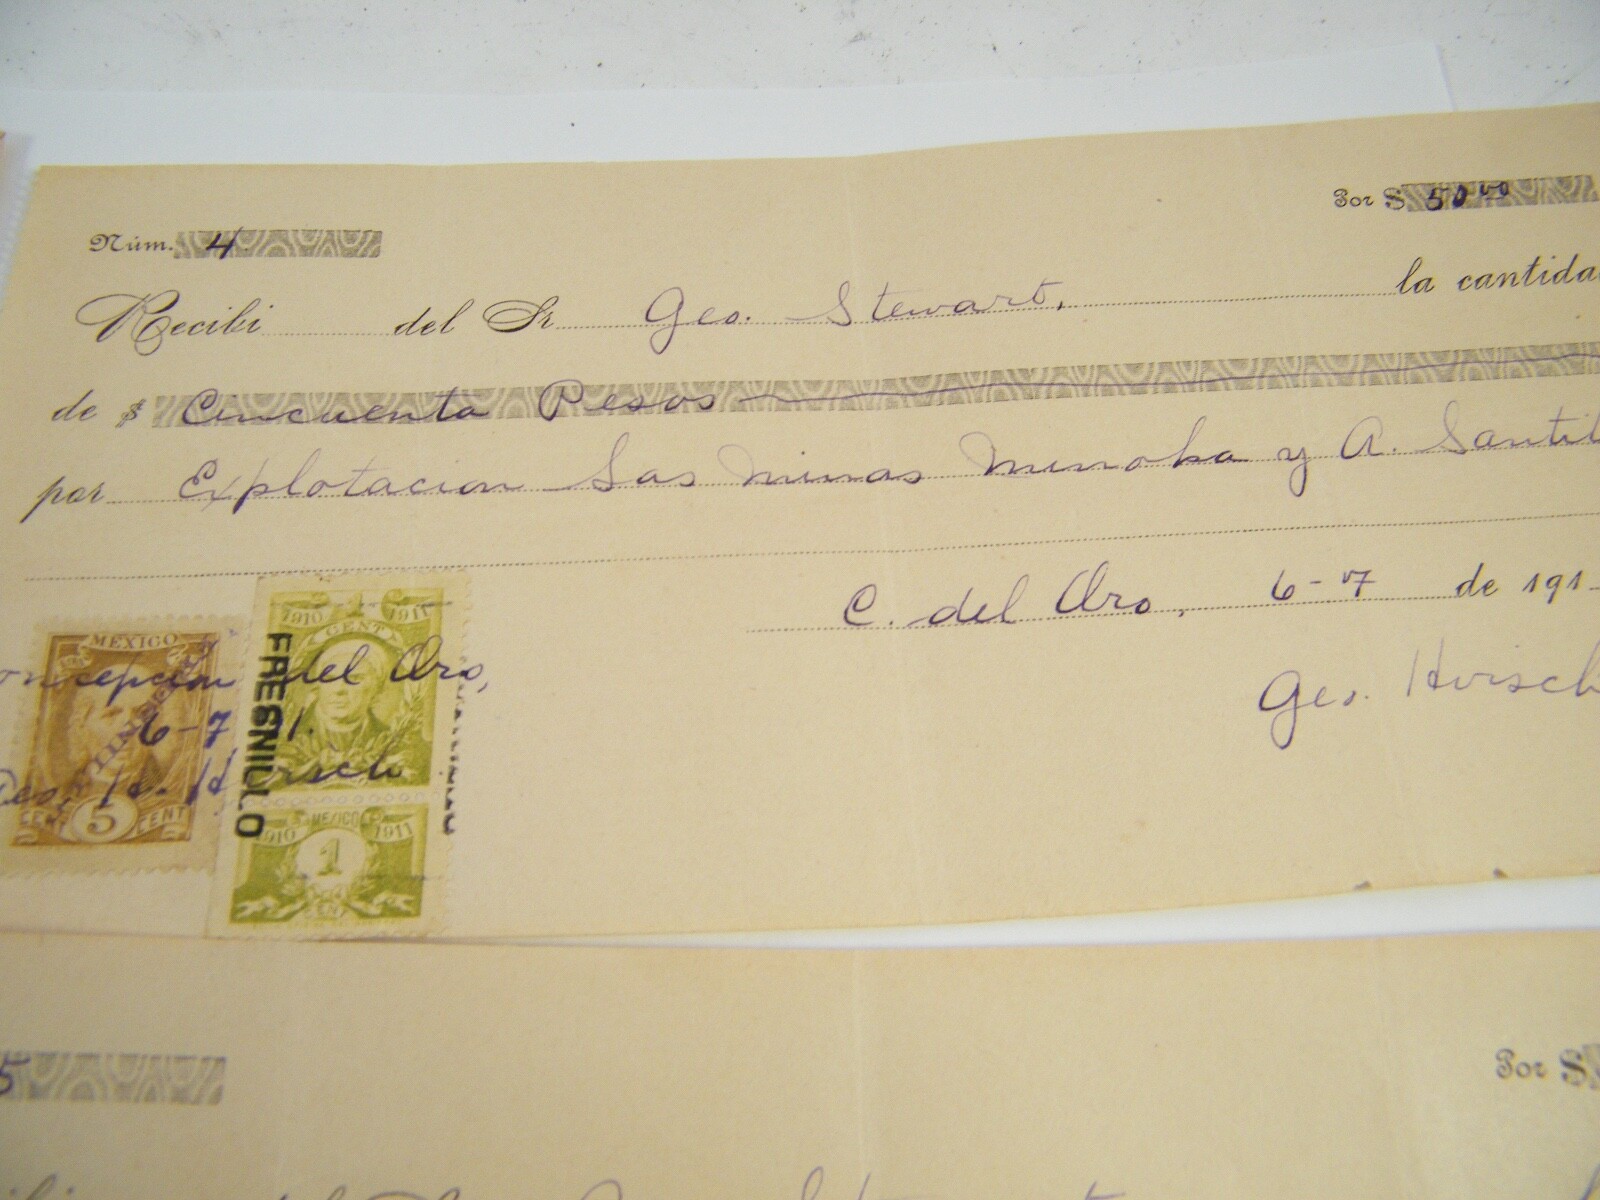 Por $ 50 00
Núm. 4
Recibi del Sr Geo. Stewart, la cantida
de $ Cincuenta Pesos
por Explotacion Las Minas Minoka y A. Santil
C. del Oro, 6-7 de 191
Geo. Hirsch
MEXICO
5
CENT
1910 1 1911
CENT
FRESNILLO
oncepcion del Oro,
6-7 11.
Geo. H. Hirsch
MEXICO
1910 1911
1
CENT
5
Por $